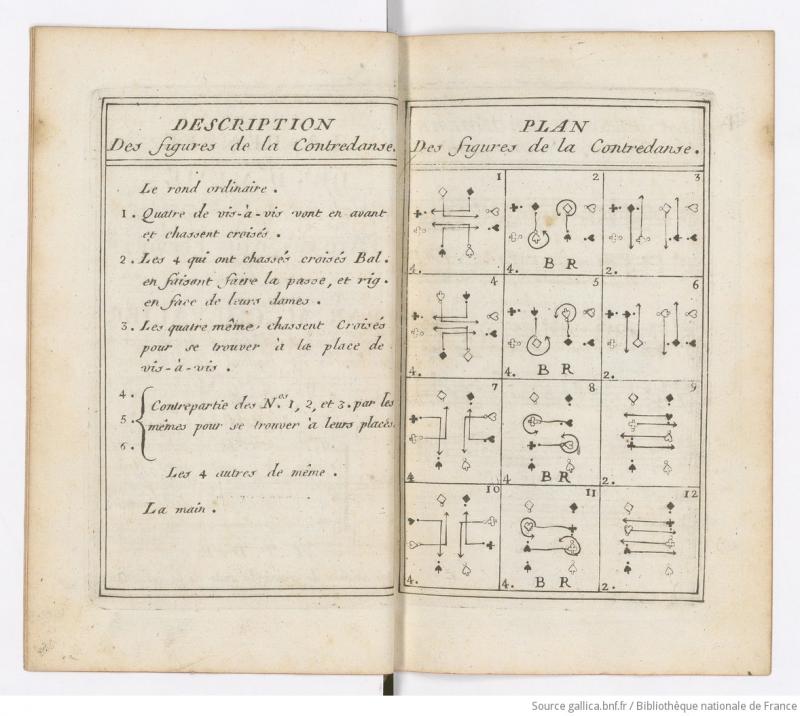 DESCRIPTION
Des figures de la Contredanse.
Le rond ordinaire.
1. Quatre de vis-à-vis vont en avant
et chassent croisés.
2. Les 4 qui ont chassés croisés Bal.
en faisant faire la passe, et rig.
en face de leurs dames.
3. Les quatre même chassent Croisés
pour se trouver à la place de
vis-à-vis.
4.
5.
6.
Contrepartie des N.os 1, 2, et 3. par les
mêmes pour se trouver à leurs places.
Les 4 autres de même.
La main.
PLAN
Des figures de la Contredanse.
1 2 3
4. 4. B R 2.
4 5 6
4. 4. B R 2.
7 8 9
4 4 B R 2.
10 11 12
4. 4. B R 2.
Source gallica.bnf.fr / Bibliothèque nationale de France